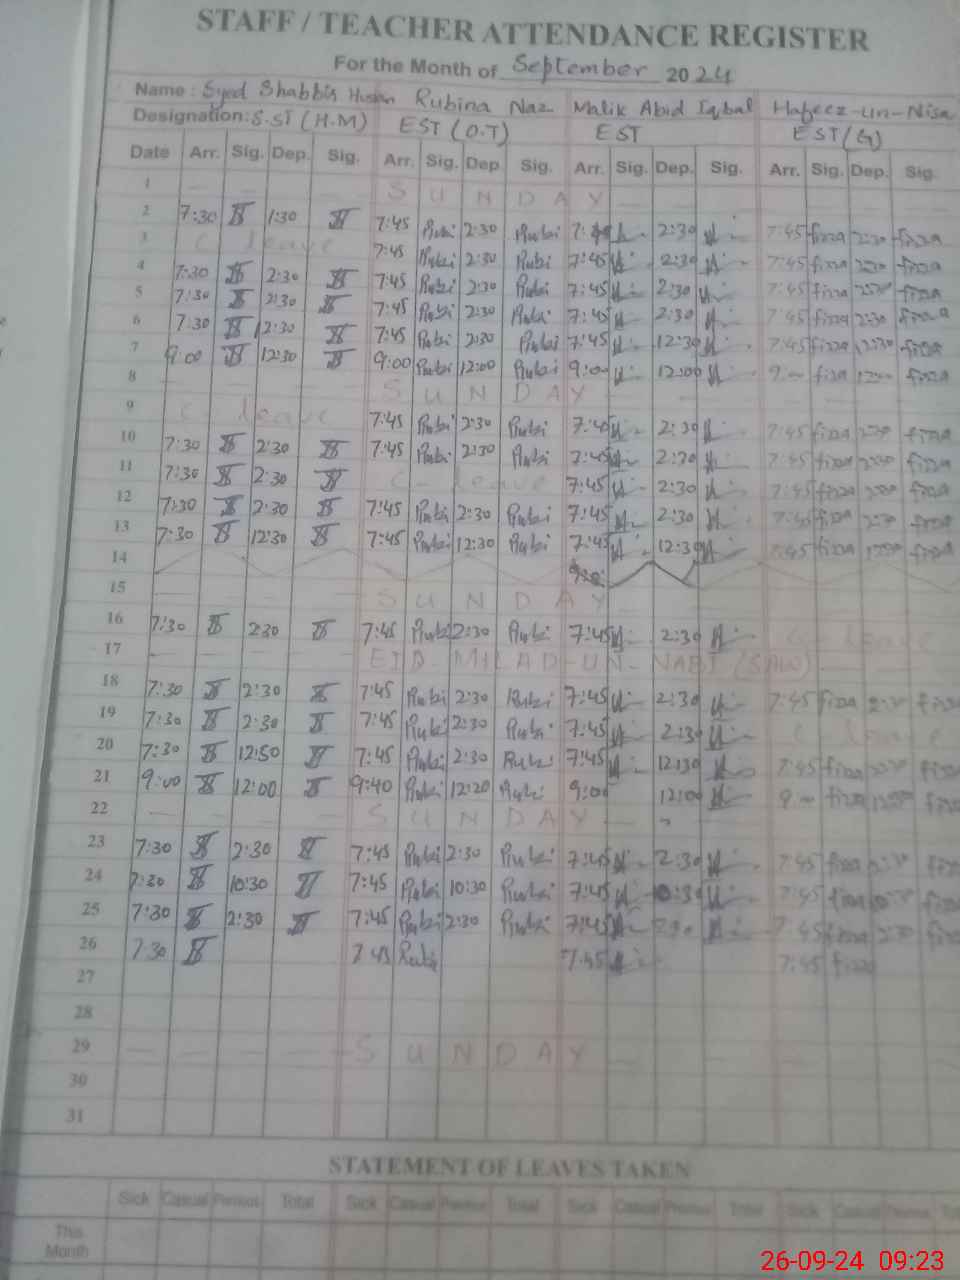 STAFF / TEACHER ATTENDANCE REGISTER
For the Month of September 2024
Name : Syed Shabbir Hussan Rubina Naz Malik Abid Iqbal Hafeez-un-Nisa
Designation: S.ST (H.M) EST (O.T) EST EST (G)
Date Arr. Sig. Dep. Sig. Arr. Sig. Dep Sig. Arr. Sig. Dep. Sig. Arr. Sig. Dep. Sig.
1 SUNDAY
2 7:30 1:30 7:45 Rubi 2:30 Rubi 2:30 7:45 fizza 2:30 fizza
3 C leave 7:45 Rubi 2:30 Rubi 7:45 2:30 7:45 fizza 2:30 fizza
4 7:30 2:30 7:45 Rubi 2:30 Rubi 7:45 2:30 7:45 fizza 2:30 fizza
5 7:30 2:30 7:45 Rubi 2:30 Rubi 7:45 2:30 7:45 fizza 2:30 fizza
6 7:30 12:30 7:45 Rubi 2:30 Rubi 7:45 12:30 7:45 fizza 12:30 fizza
7 9:00 12:30 9:00 Rubi 12:00 Rubi 9:00 12:00 9:00 fizza 1200 fizza
8 SUNDAY
9 C leave 7:45 Rubi 2:30 Rubi 7:45 2:30 7:45 fizza 2:30 fizza
10 7:30 2:30 7:45 Rubi 2:30 Rubi 7:45 2:30 7:45 fizza 2:30 fizza
11 7:30 2:30 C - leave 7:45 2:30 7:45 fizza 2:30 fizza
12 7:30 2:30 7:45 Rubi 2:30 Rubi 7:45 2:30 7:45 fizza 2:30 fizza
13 7:30 12:30 7:45 Rubi 12:30 Rubi 7:45 12:30 7:45 fizza 1230 fizza
14
15 SUNDAY
16 7:30 2:30 7:45 Rubi 2:30 Rubi 7:45 2:30 C leave
17 EID-MILAD-UN-NABI (SAW)
18 7:30 2:30 7:45 Rubi 2:30 Rubi 7:45 2:30 7:45 fizza 2:30 fizza
19 7:30 2:30 7:45 Rubi 2:30 Rubi 7:45 2:30 C - leave
20 7:30 12:50 7:45 Rubi 2:30 Rubi 7:45 12:30 7:45 fizza fizza
21 9:00 12:00 9:40 Rubi 12:20 Rubi 9:00 12:00 9 fizza fizza
22 SUNDAY
23 7:30 2:30 7:45 Rubi 2:30 Rubi 7:45 2:30 7:45 fizza 2:30 fizza
24 7:30 10:30 7:45 Rubi 10:30 Rubi 7:45 10:30 7:45 fizza 10:30 fizza
25 7:30 2:30 7:45 Rubi 2:30 Rubi 7:45 2:30 7:45 fizza 2:30 fizza
26 7:30 7:45 Rubi 7:45 7:45 fizza
27
28
29 SUNDAY
30
31
STATEMENT OF LEAVES TAKEN
Sick Casual Previous Total Sick Casual Previous Total Sick Casual Previous Total Sick Casual Previous
This
Month
26-09-24 09:23